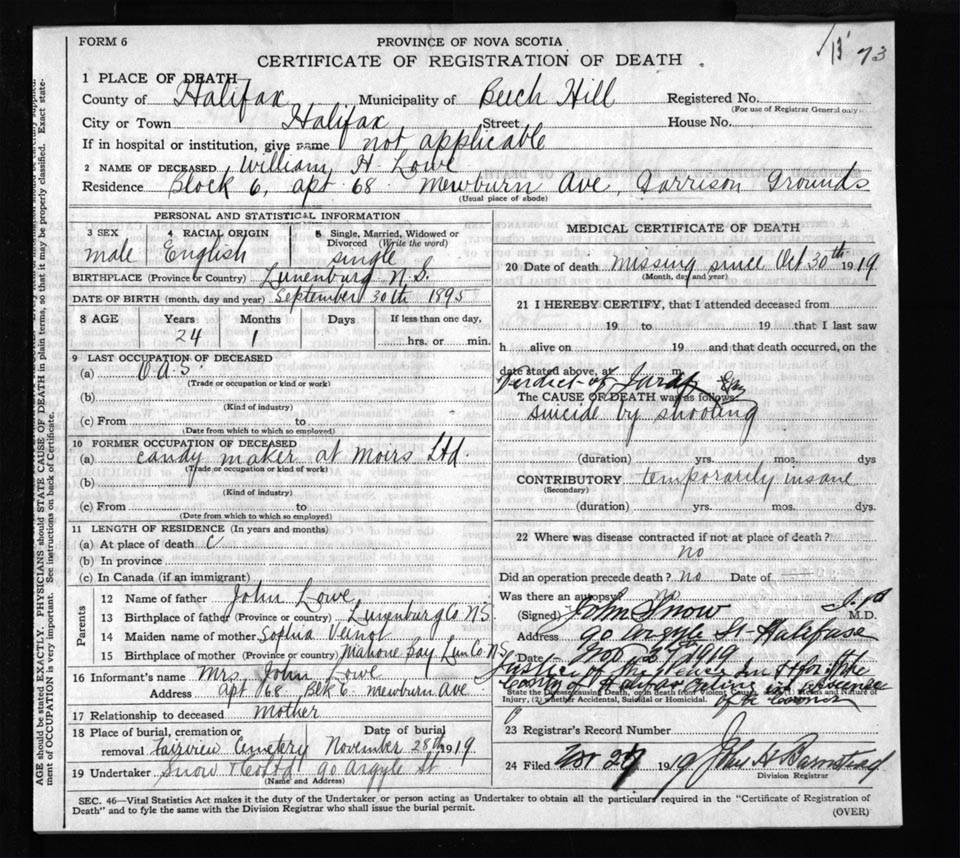 FORM 6
PROVINCE OF NOVA SCOTIA
CERTIFICATE OF REGISTRATION OF DEATH
73
1 PLACE OF DEATH
County of Halifax Municipality of Beech Hill Registered No.
(For use of Registrar General only)
City or Town Halifax Street House No.
If in hospital or institution, give name not applicable
2 NAME OF DECEASED William H. Lowe
Residence Block 6, apt 68 Mewburn Ave, Garrison Grounds
(Usual place of abode)
PERSONAL AND STATISTICAL INFORMATION
3 SEX male
4 RACIAL ORIGIN English
5 Single, Married, Widowed or Divorced (Write the word) single
BIRTHPLACE (Province or Country) Lunenburg N.S.
DATE OF BIRTH (month, day and year) September 30th 1895
8 AGE Years Months Days If less than one day,
24 1 hrs. or min.
9 LAST OCCUPATION OF DECEASED
(a) O.A.S.
(Trade or occupation or kind or work)
(b)
(Kind of industry)
(c) From to
(Date from which to which so employed)
10 FORMER OCCUPATION OF DECEASED
(a) candy maker at Moirs Ltd.
(Trade or occupation or kind of work)
(b)
(Kind of industry)
(c) From to
(Date from which to which so employed)
11 LENGTH OF RESIDENCE (In years and months)
(a) At place of death
(b) In province
(c) In Canada (if an immigrant)
Parents
12 Name of father John Lowe
13 Birthplace of father (Province or Country) Lunenburg Co N.S
14 Maiden name of mother Sophia Veinot
15 Birthplace of mother (Province or country) Mahone Bay Lun Co. N.S
16 Informant's name Mrs. John Lowe
Address apt 68 Blk 6 Mewburn Ave
17 Relationship to deceased mother
18 Place of burial, cremation or removal Fairview Cemetery Date of burial November 28th 1919
19 Undertaker Snow & Co Ltd 90 Argyle St
(Name and Address)
MEDICAL CERTIFICATE OF DEATH
20 Date of death missing since Oct 30th 1919
(Month, day and year)
21 I HEREBY CERTIFY, that I attended deceased from
19 to 19 that I last saw
h alive on 19 and that death occurred, on the
date stated above, at m.
Verdict of Jury
The CAUSE OF DEATH was as follows
suicide by shooting
(duration) yrs. mos. dys
CONTRIBUTORY temporarily insane
(Secondary)
(duration) yrs. mos. dys.
22 Where was disease contracted if not at place of death?
no
Did an operation precede death? no Date of
Was there an autopsy? no
(Signed) John Snow M.D.
Address 90 Argyle St - Halifax
Date Nov 1919
State the Disease causing Death, or in death from Violent Causes, (1) Means and Nature of
Injury, (2) whether Accidental, Suicidal or Homicidal.
23 Registrar's Record Number
24 Filed Nov 27 1919 John H Barnstead
Division Registrar
SEC. 46—Vital Statistics Act makes it the duty of the Undertaker or person acting as Undertaker to obtain all the particulars required in the "Certificate of Registration of
Death" and to fyle the same with the Division Registrar who shall issue the burial permit.
(OVER)
AGE should be stated EXACTLY. PHYSICIANS should STATE CAUSE OF DEATH in plain terms, so that it may be properly classified. Exact statement of OCCUPATION is very important. See instructions on back of Certificate.